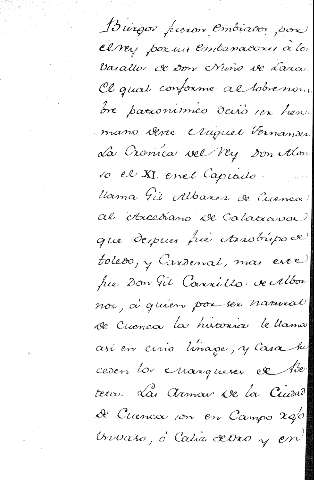 Burgos fueron embiados, por
el rey por sus embaxadores à los
vasallos de Don Nuño de Lara
El qual conforme al sobrenom
bre patronimico devio ser her
mano deste Miguel Fernandez
La Cronica del Rey Don Alon
so el XI. en el Capitulo.
llama Gil Albarez de Cuenca
al Arcediano de Calatrava
que despues fue Arzobispo de
toledo, y Cardenal, mas este
fue Don Gil Carrillo de Albor
noz, à quien por ser natural
de Cuenca la historia le llama
asi en cuio linage, y Casa su
ceden los Marqueses de
Las Armas de la Ciudad
de Cuenca son en Campo
un vaso, ò Caliz de oro y en